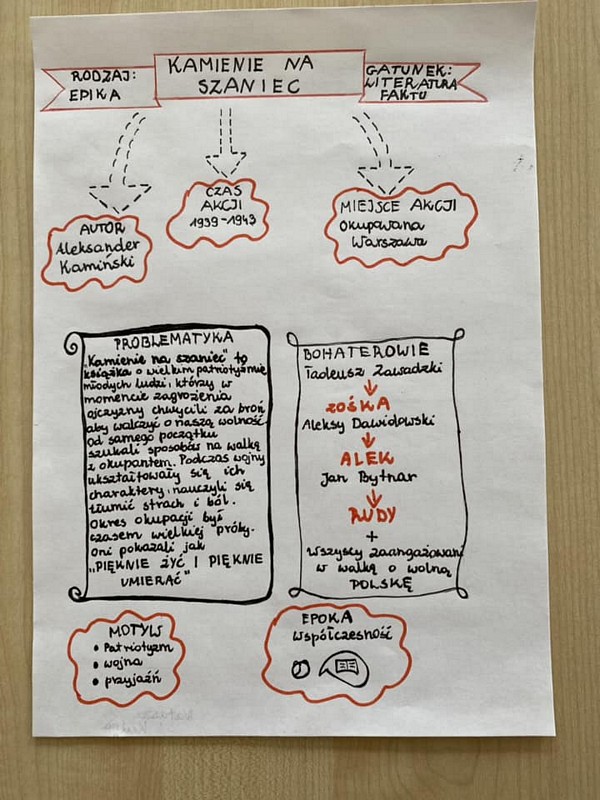 RODZAJ:
EPIKA
KAMIENIE NA
SZANIEC
GATUNEK:
LITERATURA
FAKTU
AUTOR
Aleksander
Kamiński
CZAS
AKCJI
1939-1943
MIEJSCE AKCJI
Okupowana
Warszawa
PROBLEMATYKA
"Kamienie na szaniec" to
książka o wielkim patriotyzmie
młodych ludzi, którzy w
momencie zagrożenia
ojczyzny chwycili za broń
aby walczyć o naszą wolność.
Od samego początku
szukali sposobów na walkę
z okupantem. Podczas wojny
ukształtowały się ich
charaktery, nauczyli się
tłumić strach i ból.
Okres okupacji był
czasem wielkiej próby.
Oni pokazali jak
"PIĘKNIE ŻYĆ I PIĘKNIE
UMIERAĆ"
BOHATEROWIE
Tadeusz Zawadzki
ZOŚKA
Aleksy Dawidowski
ALEK
Jan Bytnar
RUDY
+
Wszyscy zaangażowani
w walkę o wolną
POLSKĘ
MOTYW
• Patriotyzm
• wojna
• przyjaźń
EPOKA
Współczesność